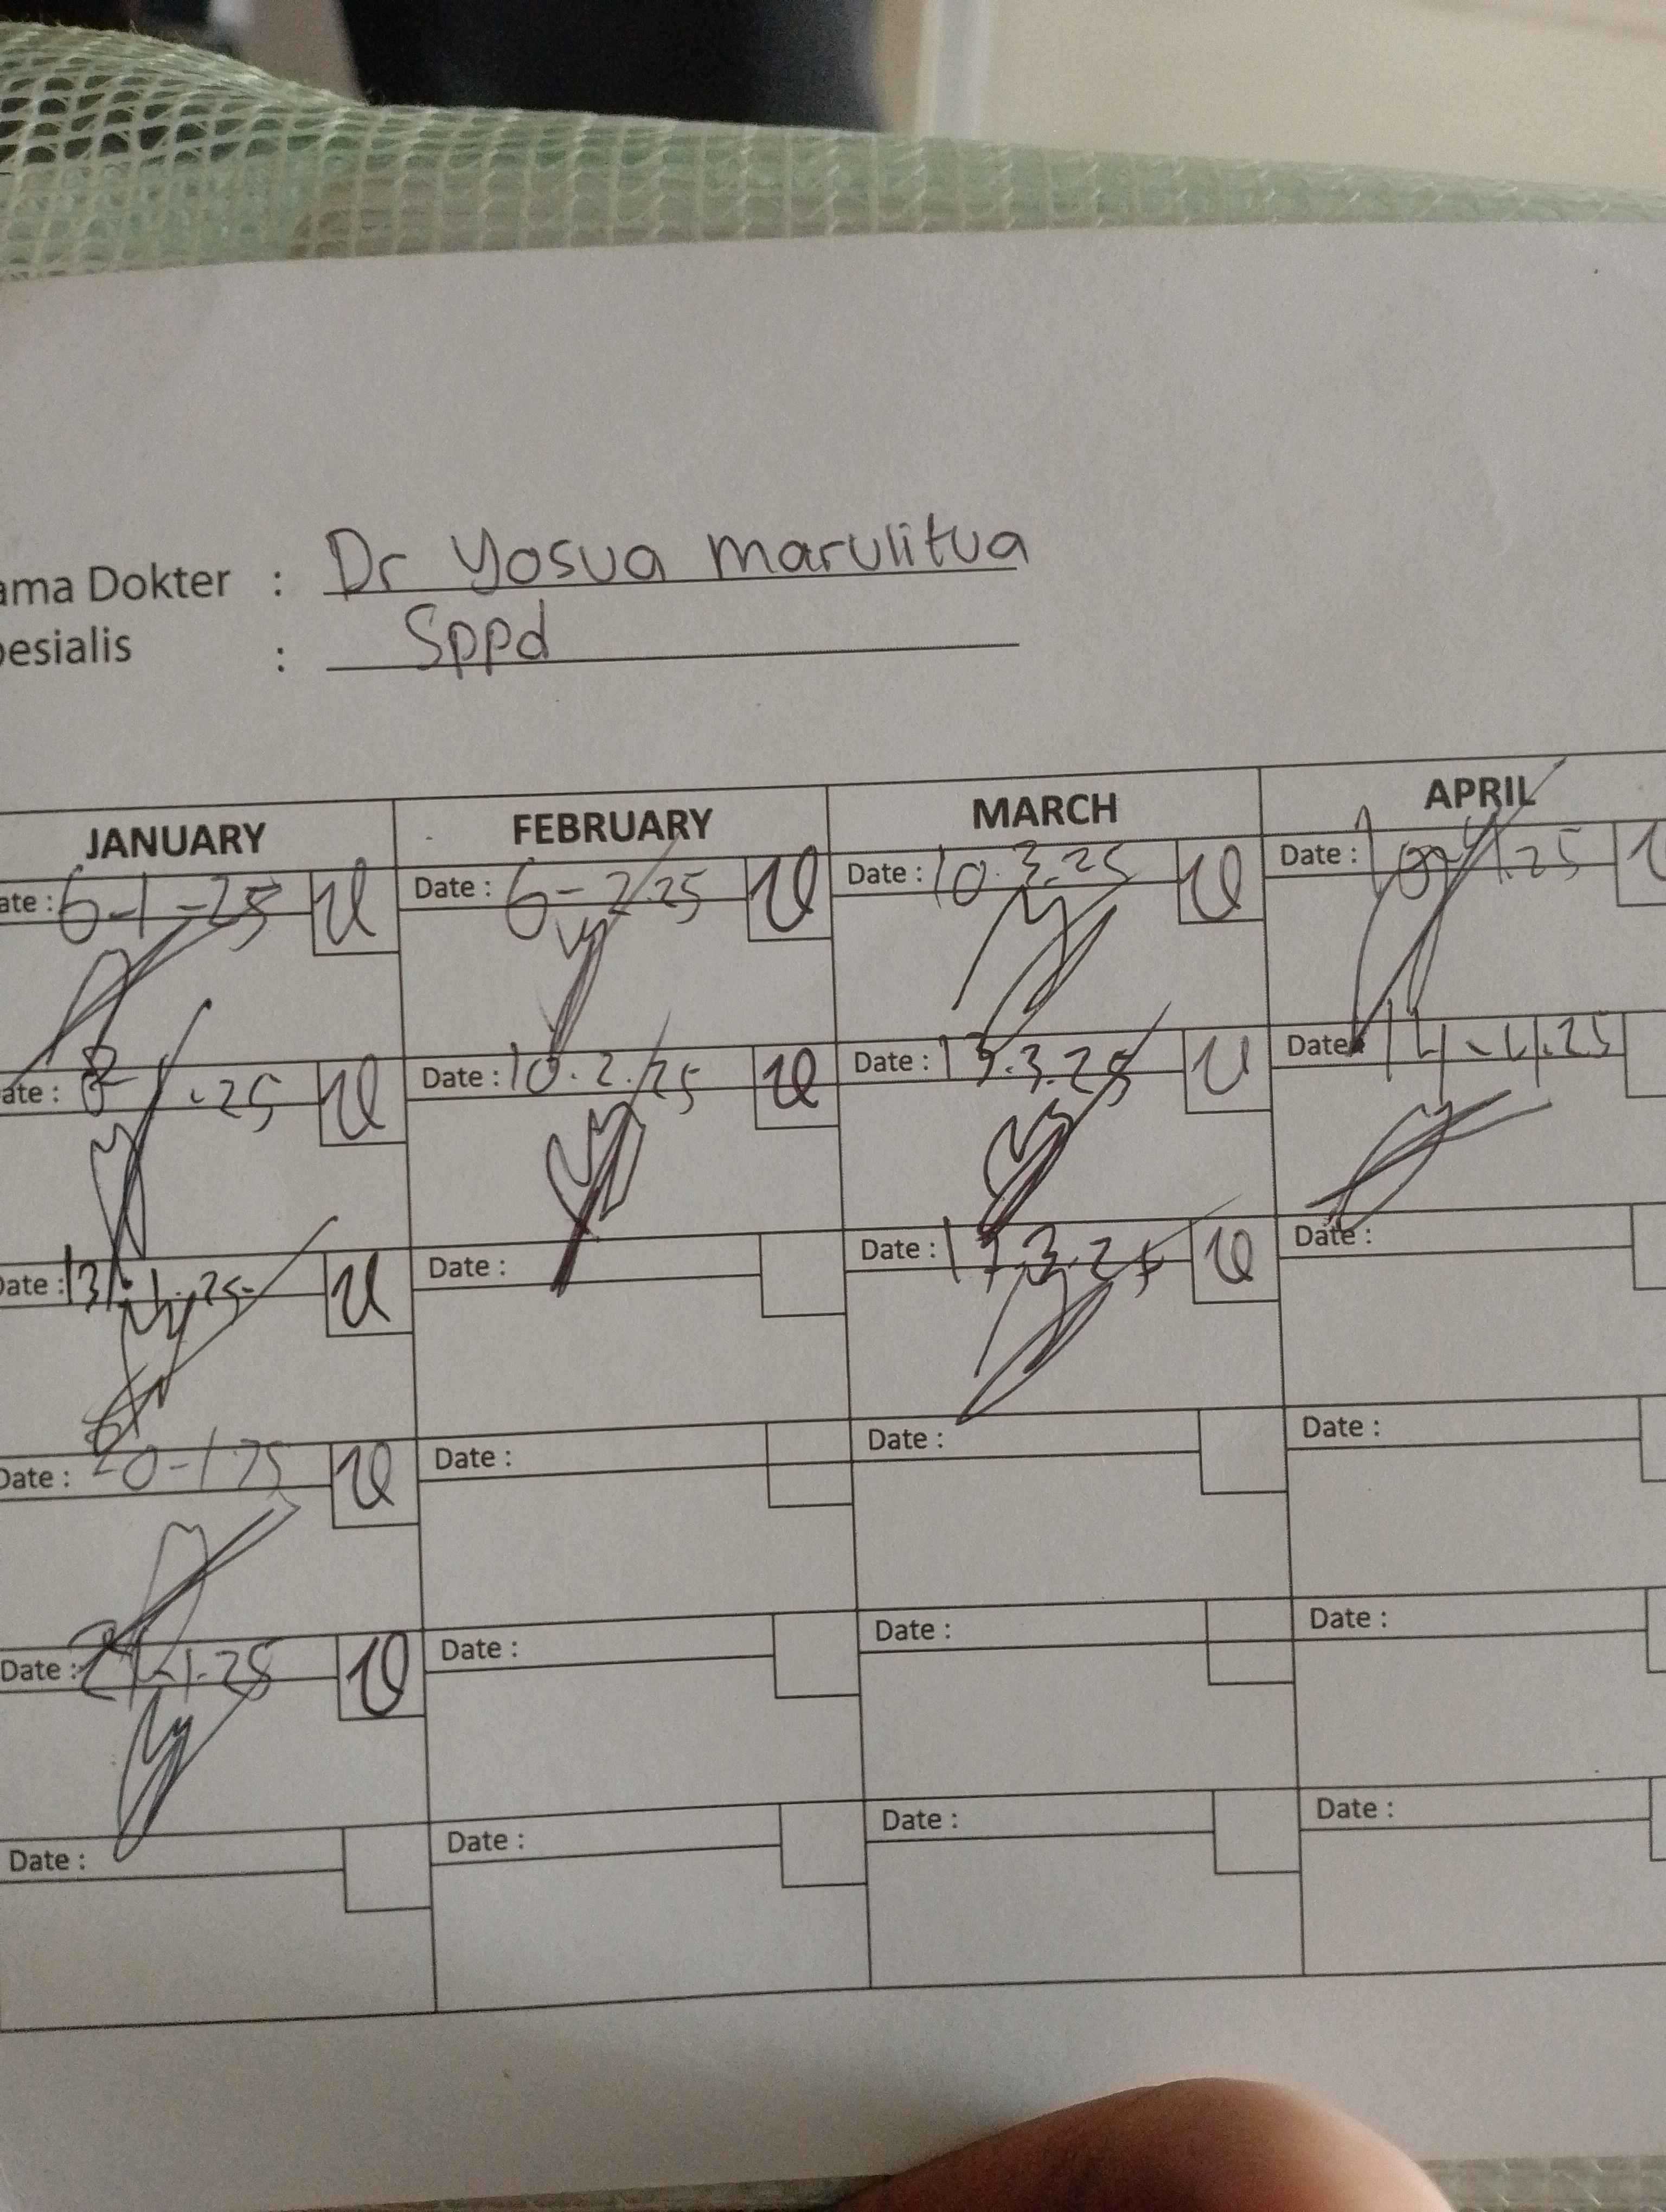 ama Dokter : Dr Yosua marulitua
pesialis : Sppd
JANUARY FEBRUARY MARCH APRIL
ate : 6-1-25 Date : 6-2.25 Date : 10.3.25 Date : 10-4.25
ate : 8-1.25 Date : 10.2.25 Date : 13.3.25 Date : 14-4.25
Date : 13.1.25 Date : Date : 17.3.25 Date :
Date : 20-1 25 Date : Date : Date :
Date : -1.25 Date : Date : Date :
Date : Date : Date : Date :